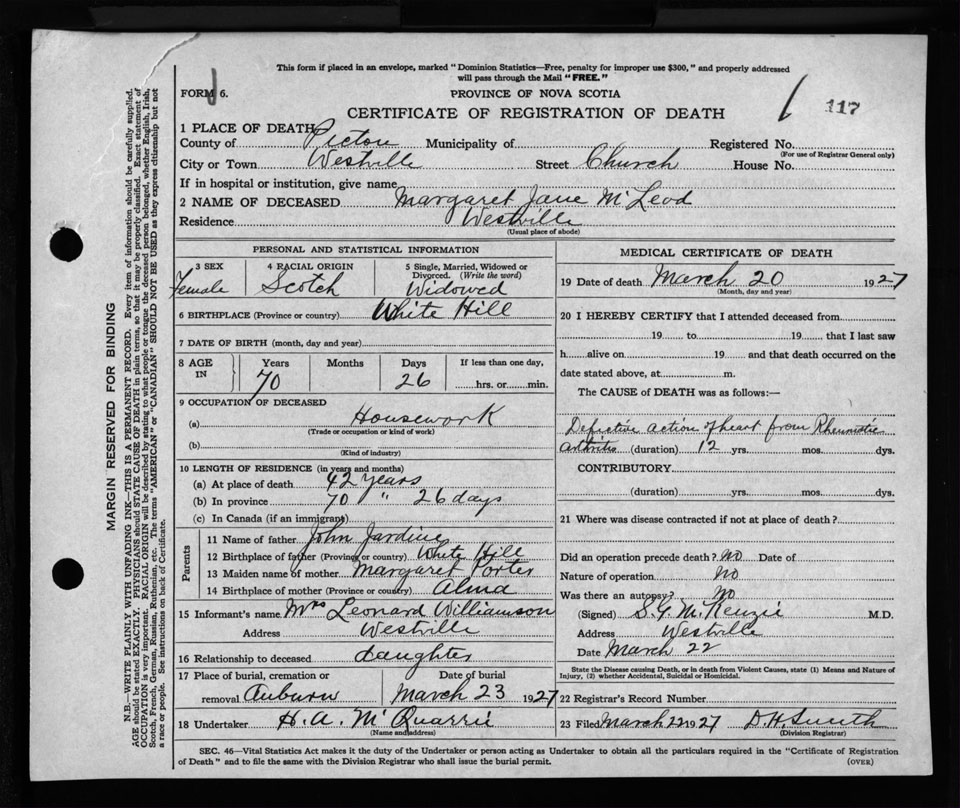 This form if placed in an envelope, marked "Dominion Statistics—Free, penalty for improper use $300," and properly addressed
will pass through the Mail "FREE."
FORM 6.
PROVINCE OF NOVA SCOTIA
CERTIFICATE OF REGISTRATION OF DEATH
117
1 PLACE OF DEATH
County of Pictou Municipality of Registered No.
(For use of Registrar General only)
City or Town Westville Street Church House No.
If in hospital or institution, give name
2 NAME OF DECEASED Margaret Jane McLeod
Residence Westville
(Usual place of abode)
PERSONAL AND STATISTICAL INFORMATION
3 SEX 4 RACIAL ORIGIN 5 Single, Married, Widowed or
Divorced. (Write the word)
Female Scotch Widowed
6 BIRTHPLACE (Province or country) White Hill
7 DATE OF BIRTH (month, day and year)
8 AGE IN Years Months Days If less than one day,
70 26 hrs. or min.
9 OCCUPATION OF DECEASED
(a) Housework
(Trade or occupation or kind of work)
(b)
(Kind of industry)
10 LENGTH OF RESIDENCE (in years and months)
(a) At place of death 42 years
(b) In province 70 " 26 days
(c) In Canada (if an immigrant)
Parents
11 Name of father John Jardine
12 Birthplace of father (Province or country) White Hill
13 Maiden name of mother Margaret Porter
14 Birthplace of mother (Province or country) Alma
15 Informant's name Mrs Leonard Williamson
Address Westville
16 Relationship to deceased daughter
17 Place of burial, cremation or Date of burial
removal Auburn March 23 1927
18 Undertaker H. A. McQuarrie
(Name and address)
MEDICAL CERTIFICATE OF DEATH
19 Date of death March 20 1927
(Month, day and year)
20 I HEREBY CERTIFY that I attended deceased from
19 to 19 that I last saw
h alive on 19 and that death occurred on the
date stated above, at m.
The CAUSE of DEATH was as follows:—
Defective action of heart from Rheumatic
arthritis (duration) 12 yrs. mos. dys.
CONTRIBUTORY
(duration) yrs. mos. dys.
21 Where was disease contracted if not at place of death?
Did an operation precede death? No Date of
Nature of operation No
Was there an autopsy? No
(Signed) S. G. McKenzie M.D.
Address Westville
Date March 22
State the Disease causing Death, or in death from Violent Causes, state (1) Means and Nature of
Injury, (2) whether Accidental, Suicidal or Homicidal.
22 Registrar's Record Number
23 Filed March 22 1927 D H Smith
(Division Registrar)
SEC. 46—Vital Statistics Act makes it the duty of the Undertaker or person acting as Undertaker to obtain all the particulars required in the "Certificate of Registration
of Death" and to file the same with the Division Registrar who shall issue the burial permit. (OVER)
MARGIN RESERVED FOR BINDING
N.B.—WRITE PLAINLY WITH UNFADING INK—THIS IS A PERMANENT RECORD. Every item of information should be carefully supplied.
AGE should be stated EXACTLY. PHYSICIANS should STATE CAUSE OF DEATH in plain terms, so that it may be properly classified. Exact statement of
OCCUPATION is very important. RACIAL ORIGIN will be described by stating to what people or tongue the deceased person belonged, whether English, Irish,
Scotch, French, German, Russian, Ruthenian, etc. The terms "AMERICAN" or "CANADIAN" SHOULD NOT BE USED as they express citizenship but not
a race or people. See instructions on back of Certificate.